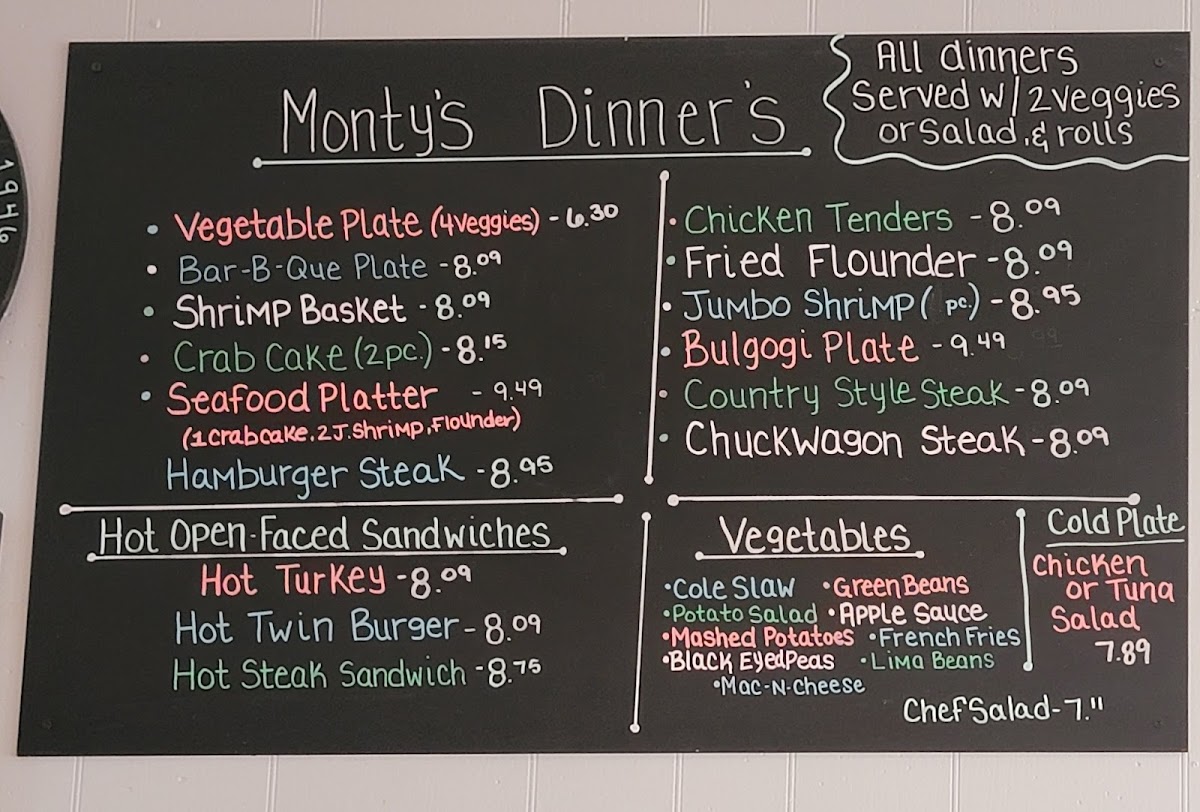 1946
Monty's Dinner's
All dinners
Served w/ 2 veggies
or Salad, & rolls
• Vegetable Plate (4 Veggies) - 6.30
• Bar-B-Que Plate - 8.09
• Shrimp Basket - 8.09
• Crab Cake (2 pc.) - 8.15
• Seafood Platter - 9.49
(1 crabcake, 2 J. Shrimp, Flounder)
Hamburger Steak - 8.95
• Chicken Tenders - 8.09
• Fried Flounder - 8.09
• Jumbo Shrimp ( pc.) - 8.95
• Bulgogi Plate - 9.49
• Country Style Steak - 8.09
• Chuckwagon Steak - 8.09
Hot Open-Faced Sandwiches
Hot Turkey - 8.09
Hot Twin Burger - 8.09
Hot Steak Sandwich - 8.75
Vegetables
• Cole Slaw • Green Beans
• Potato Salad • Apple Sauce
• Mashed Potatoes • French Fries
• Black Eyed Peas • Lima Beans
• Mac-N-Cheese
Cold Plate
Chicken
or Tuna
Salad
7.89
Chef Salad - 7.11